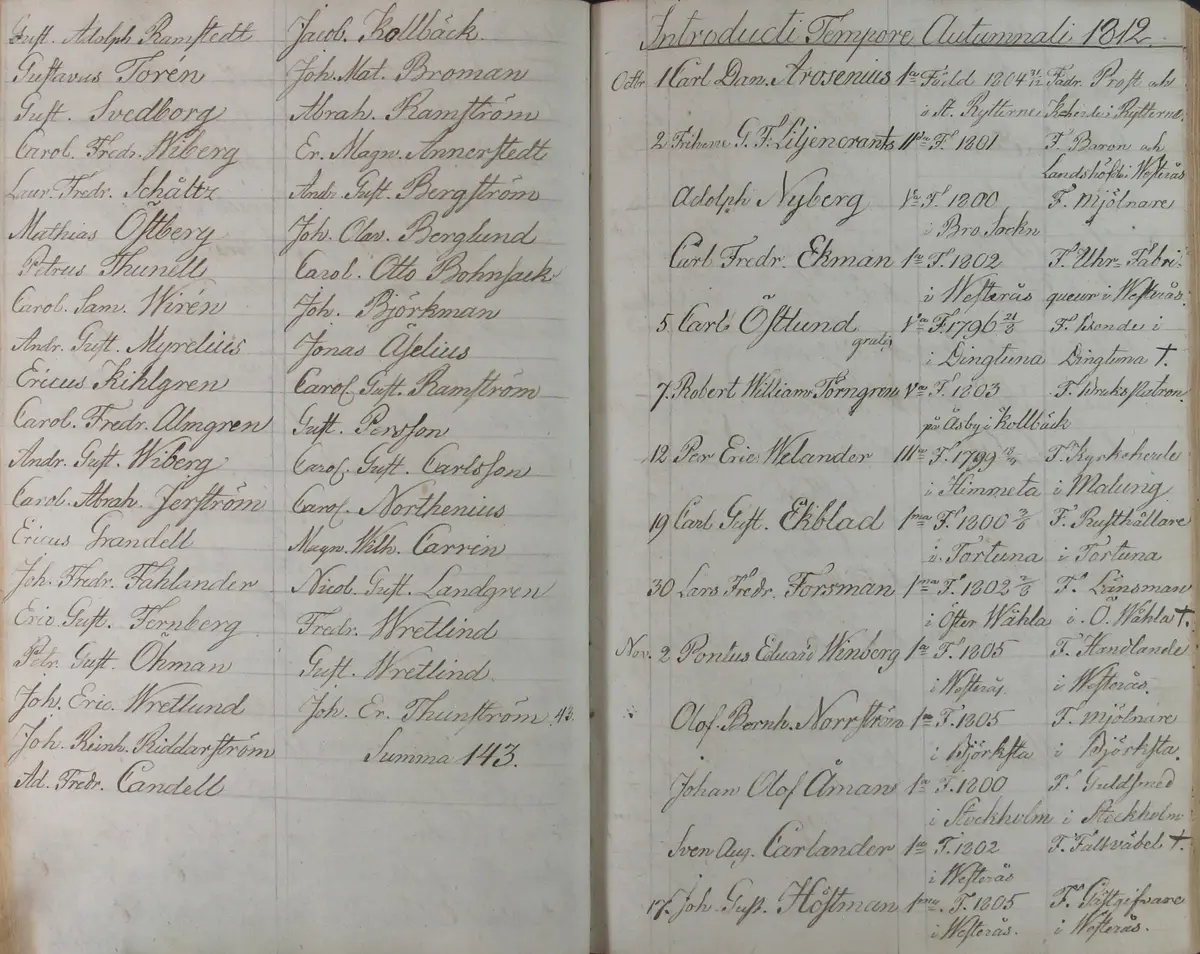 Gust. Adolph Ramstedt
Gustavus Torén
Gust. Svedborg
Carol. Fredr. Wiberg
Laur. Fredr. Schåltz
Mathias Östberg
Petrus Thunell
Carol. Sam. Wirén
Andr. Gust. Myrelius
Ericus Kihlgren
Carol. Fredr. Almgren
Andr. Gust. Wiberg
Carol. Abrah. Jerström
Ericus Grandell
Joh. Fredr. Fahlander
Eric Gust. Fernberg
Petr. Gust. Öhman
Joh. Eric. Wretlund
Joh. Reinh. Riddarström
Ad. Fredr. Candell
Jacob. Kollbäck.
Joh. Mat. Broman
Abrah. Ramström
Er. Magn. Annerstedt
Andr. Gust. Bergström
Joh. Olav. Berglund
Carol. Otto Bohnsack
Joh. Björkman
Jonas Äselius
Carol. Gust. Ramström
Gust. Persson
Carol. Gust. Carlsson
Carol. Northenius
Magn. Wilh. Carrin
Nicol. Gust. Landgren
Fredr. Wretlind
Gust. Wretlind.
Joh. Er. Thunström 43.
Summa 143.
Introducti Tempore Autumnali 1812.
Octbr 1 Carl Dan. Arosenius 1a Född 1804 Fadr. Prost och
i St. Rytterne Kyrkoherde i Rytterne.
2 Friherre G. F. Liljencrants F. 1801 F. Baron och
Landshöfd. i Westerås
Adolph Nyberg F. 1800 F. Mjölnare
i Bro Sockn
Carl Fredr. Ekman 1a F. 1802 F. Uhr-Fabri-
i Westerås queur i Westerås.
5 Carl Östlund gratis F. 1796 21/3 F. Bonde i
i Dingtuna Dingtuna †.
7. Robert William Törngren F. 1803 F. Bruks Patron
på Åsby i Kollbäck
12 Per Eric Welander IIIa F. 1799 F. Kyrkoherde
i Himmeta i Malung
19 Carl Gust. Ekblad 1ma F. 1800 F. Rusthållare
i Tortuna i Tortuna
30 Lars Fredr. Forsman 1ma F. 1802 F. Länsman
i Öster Wåhla i Ö. Wåhla †.
Nov. 2 Pontus Eduard Winberg 1a F. 1805 F. Handlande
i Westerås. i Westerås.
Olof Bernh. Norrström 1a F. 1805 F. Mjölnare
i Björksta i Björksta.
Johan Olof Åman 1a F. 1800 F. Guldsmed
i Stockholm i Stockholm
Sven Aug. Carlander 1a F. 1802 F. Fältväbel †.
i Westerås
17. Joh. Gust. Höstman 1ma F. 1805 F. Gästgifvare
i Westerås. i Westerås.